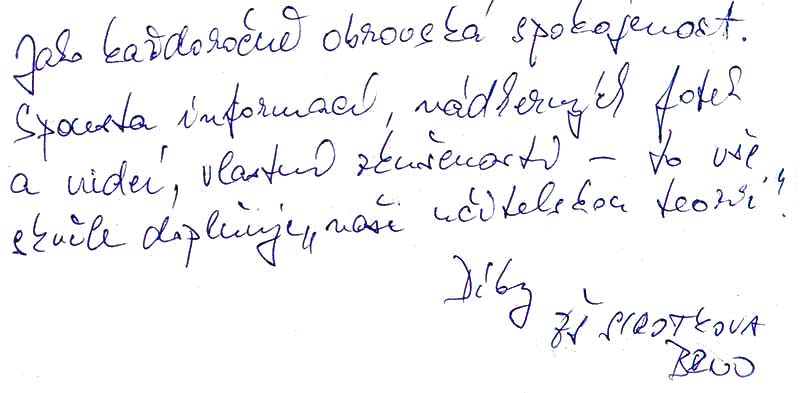 Jako každoročně obrovská spokojenost.
Spousta informací, nádherných fotek
a videí, vlastní zkušenosti – to vše
skvěle doplňuje „naši učitelskou teorii“!
Díky
ZŠ SIROTKOVA
BRNO